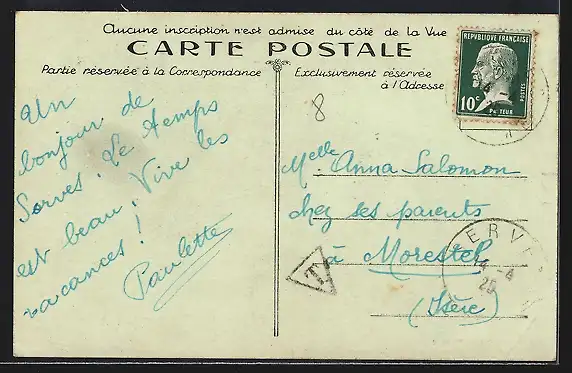 Aucune inscription n'est admise du côté de la Vue
CARTE POSTALE
Partie réservée à la Correspondance
Exclusivement réservée
à l'Adresse
REPUBLIQUE FRANÇAISE
POSTES
10c
PASTEUR
8
Un
bonjour de
Serves. Le temps
est beau, Vive les
vacances!
Paulette
Melle Anna Salomon
chez ses parents
à Morestel
(Isère)
T
ERVE
4-4
25